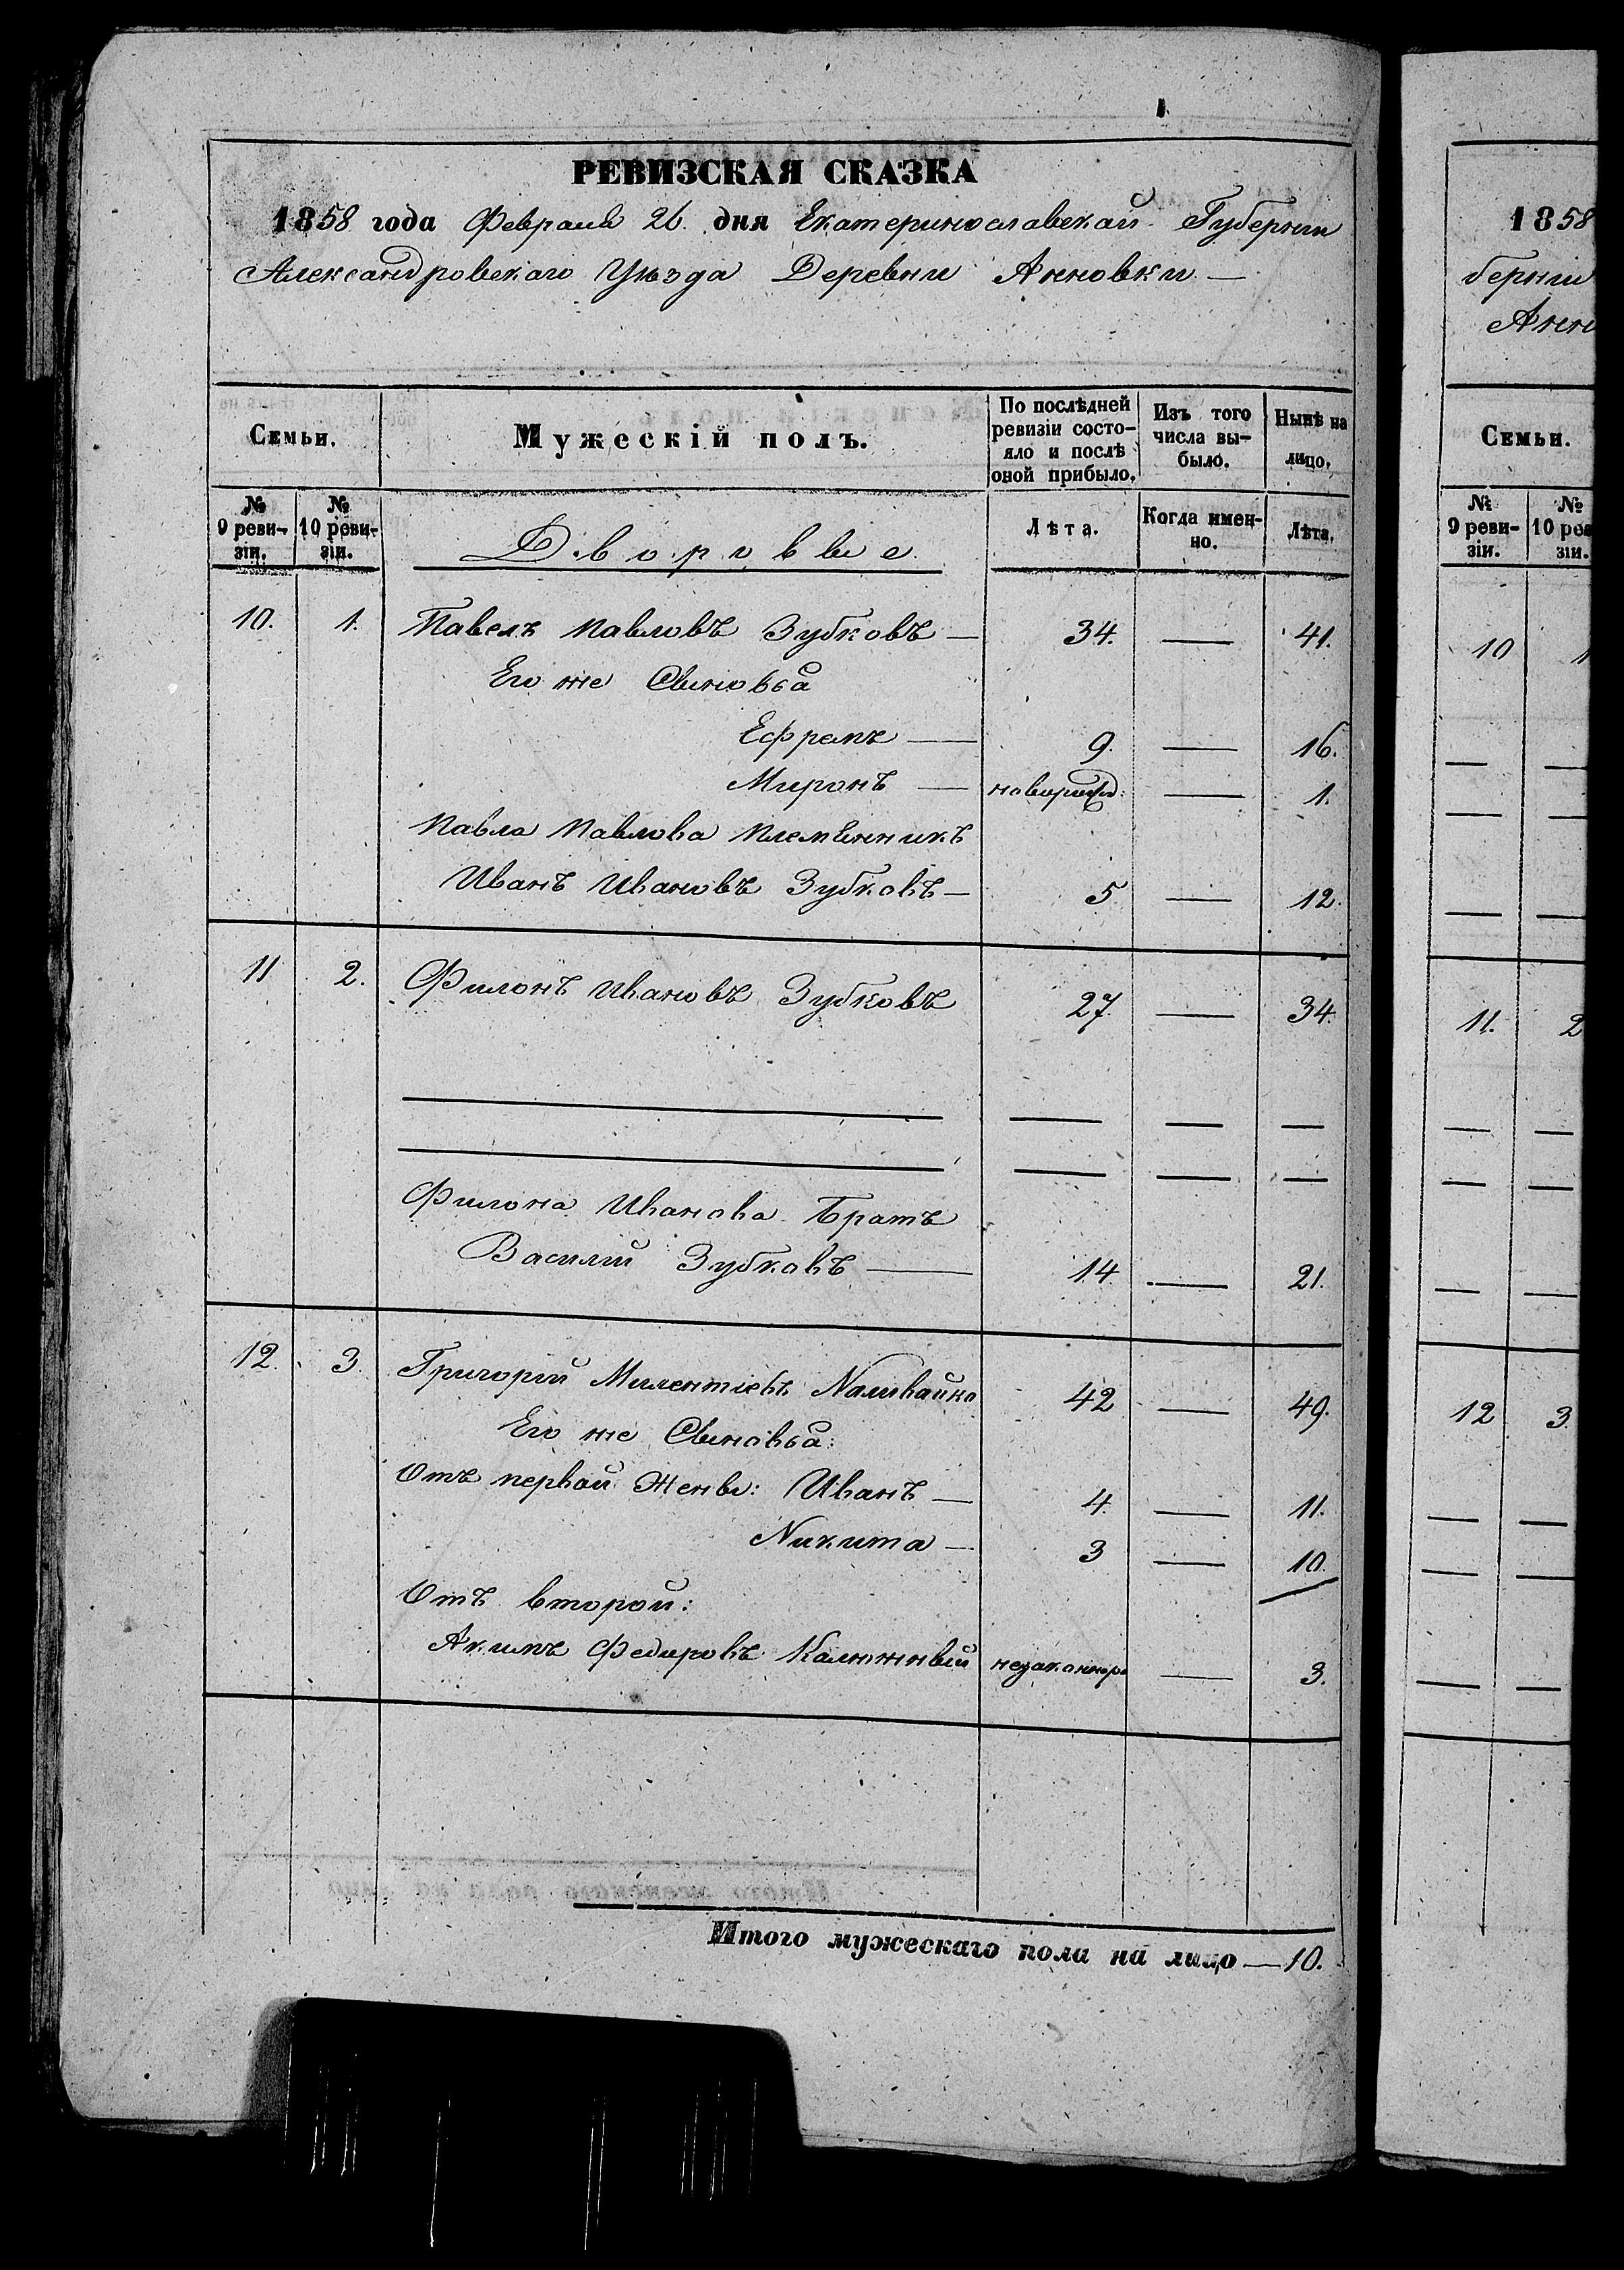 РЕВИЗСКАЯ СКАЗКА
1858 года Февраля 26. дня Екатеринославской Губернии
Александровскаго Уѣзда Деревни Анновки —
Семьи. Мужескій полъ. По послѣдней ревизіи состо- яло и послѣ оной прибыло. Изъ того числа вы- было. Нынѣ на лицо.
№ 9 реви- зіи. № 10 реви- зіи. Дворовые Лѣта. Когда имен- но. Лѣта.
10. 1. Павелъ Павловъ Зубковъ — 34. — 41.
Его же Сыновья
Ефремъ — 9. — 16.
Миронъ — новорожд: — 1.
Павла Павлова племянникъ
Иванъ Ивановъ Зубковъ — 5 — 12.
11 2. Филонъ Ивановъ Зубковъ 27. — 34.
Филона Иванова Братъ
Василій Зубковъ — 14. — 21.
12. 3. Григорій Милентіевъ Наливайко 42 — 49.
Его же Сыновья:
Отъ первой Жены: Иванъ — 4. — 11.
Никита — 3 — 10.
Отъ второй:
Акимъ Федоровъ Калюжный незаконнор — 3.
Итого мужескаго пола на лицо — 10.
1858
берніи
Анн
Семьи.
№ 9 реви- зіи. № 10 рев зіи.
10 1
11. 2
12 3.